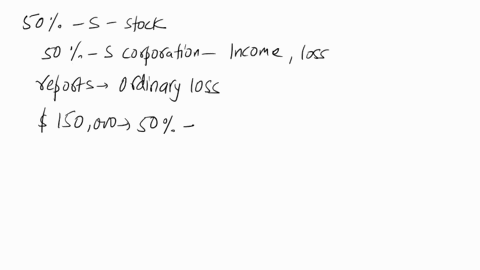 50% - S - stock
50% - S corporation - Income, loss
reports → ordinary loss
$ 150,000 → 50% -